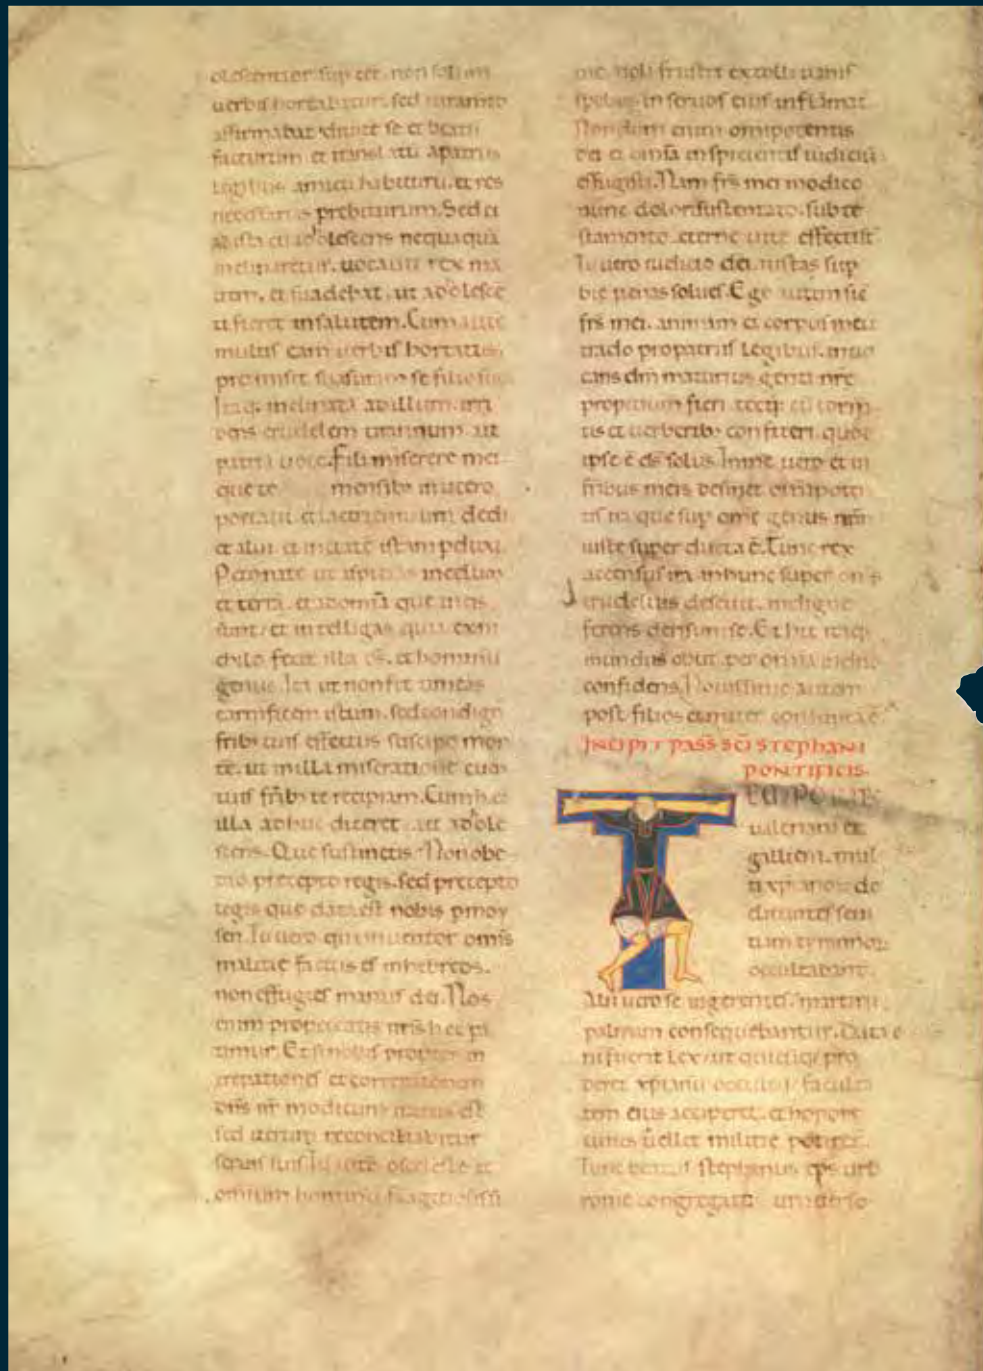 uerbis hortabatur. sed
affirmabat se et beatū
facturum et translatū apatriis
legibus amicū habiturū. et res
necessarias prebiturum. Sed ad
adolescens nequaquā
inclinaretur. uocauit rex ma
trem. et suadebat. ut adolesce
ti fieret insalutem. Cum autē
multis eam uerbis hortatus.
promisit suasuram se filio suo
Itaq. inclinata adillum. irri
dens crudelem tirannum. ait
patria uoce. Fili miserere mei
que te mensib; inutero
portaui et lac dedi
et alui et inetatē istam pduxi.
Peto nate ut aspicias incelum
et terrā. et adomīa que ineis
sunt. et intelligas quia exni
chilo fecit illa ds. et hominū
genus. Ita ut non timeas
carnificem istum. sed condign
frib; tuis effectus suscipe mor
tē. ut in illa miseratione cum
tuis frīb; te recipiam. Cum hec
illa adhuc diceret. ait adole
scens. Que sustinetis. Non obe
dio precepto regis. sed precepto
legis que data est nobis p moy
sen. Tu uero qui inuentor omīs
malitie factus es inhebreos.
non effugies manus dei. Nos
enim propeccatis nrīs hec pa
timur. Et si nobis propter in
crepationes et correptionem
dns nr modicum iratus est
sed iterum reconciliabitur
seruis suis. Tu autē o sceleste et
omnium hominū flagitiosissi
me. noli frustra extolli uanis
spebus in seruos eius inflāmat.
Nondum enim omnipotentis
dei et omīa inspicientis iudiciū
effugisti. Nam frs mei modico
nunc dolore sustentato. sub te
stamento eterne uite effecti st
Tu uero iudicio dei. iustas sup
bie penas solues. Ego autem sic
frs mei. animam et corpus meū
trado propatriis legibus. inuo
cans dm maturius genti nre
propitium fieri. teq; cū torm
tis et uerberib; confiteri. quod
ipse ē ds solus. In me uero et in
fribus meis desinet omīpotē
tis ira que sup omē genus nrm
iuste super ducta ē. Tunc rex
accensus ira in hunc super omīs
crudelius deseuit. indigne
ferens derisum se. Et hic itaq;
mundus obiit. per omnia in dno
confidens. Nouissime autem
post filios et mater consumta ē.
INCIPIT PASS SCI STEPHANI
PONTIFICIS.
TEMPORIB;
ualeriani et
gallieni. mul
ti xpianor de
clinantes seui
tiam tyrannor.
occultabant.
Alii uero se ingerentes. martirii
palmam consequebantur. Data e
ni fuerit Lex. ut quicūq; pro
deret xpianū occultū. faculta
tem eius acciperet. et honore
cuius uellet militie potiretr.
Tunc beatus stephanus eps urb
rome congregato uniuerso